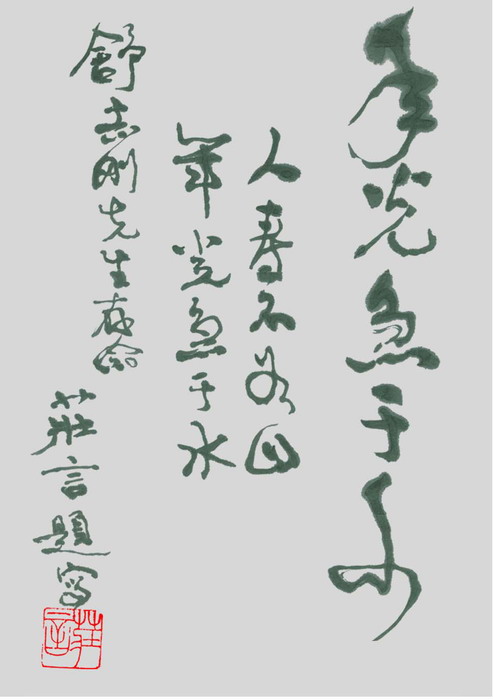 年光急于水
人寿不如山
年光急于水
舒志刚先生存念
莊言題寫
莊言